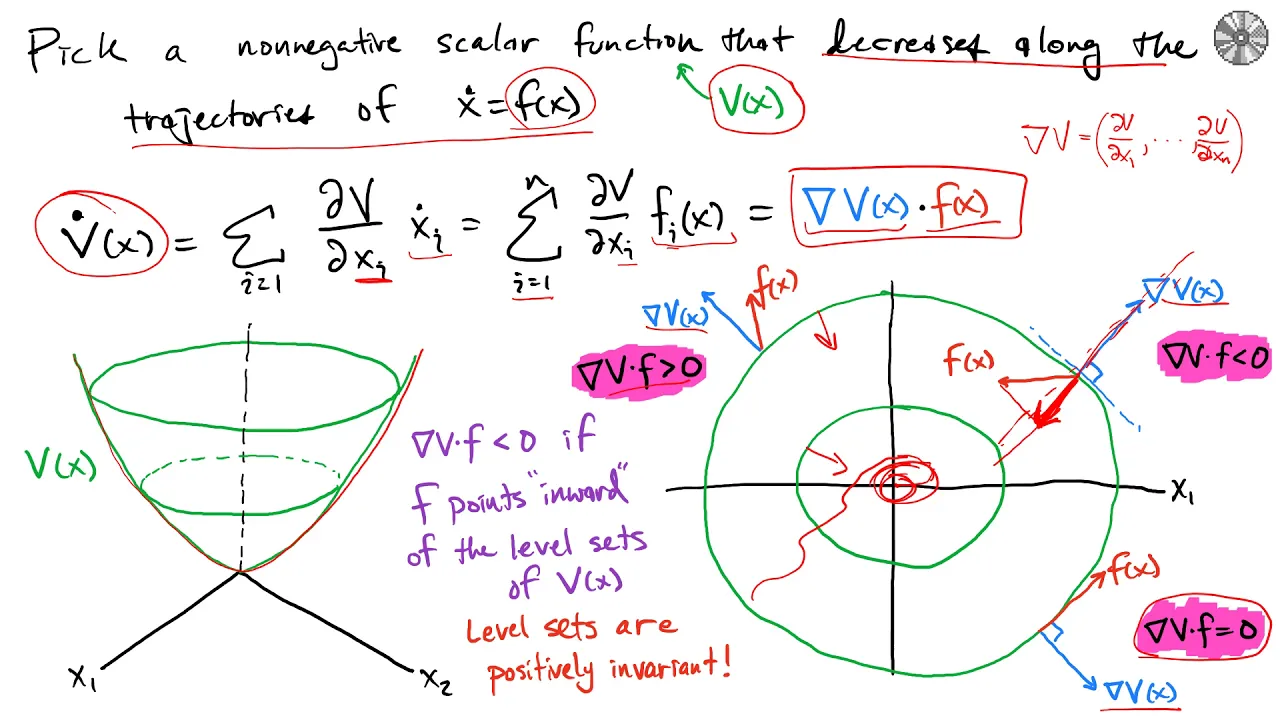 Pick a nonnegative scalar function that decreases along the
trajectories of ẋ = f(x) V(x)
∇V = (∂V/∂x₁, ..., ∂V/∂xₙ)
V̇(x) = ∑ᵢ₌₁ ∂V/∂xᵢ ẋᵢ = ∑ⁿᵢ₌₁ ∂V/∂xᵢ fᵢ(x) = ∇V(x) · f(x)
∇V(x) f(x)
∇V·f>0
∇V(x)
f(x)
∇V·f<0
V(x)
x₁ x₂
∇V·f<0 if
f points "inward"
of the level sets
of V(x)
Level sets are
positively invariant!
x₁
f(x)
∇V·f=0
∇V(x)